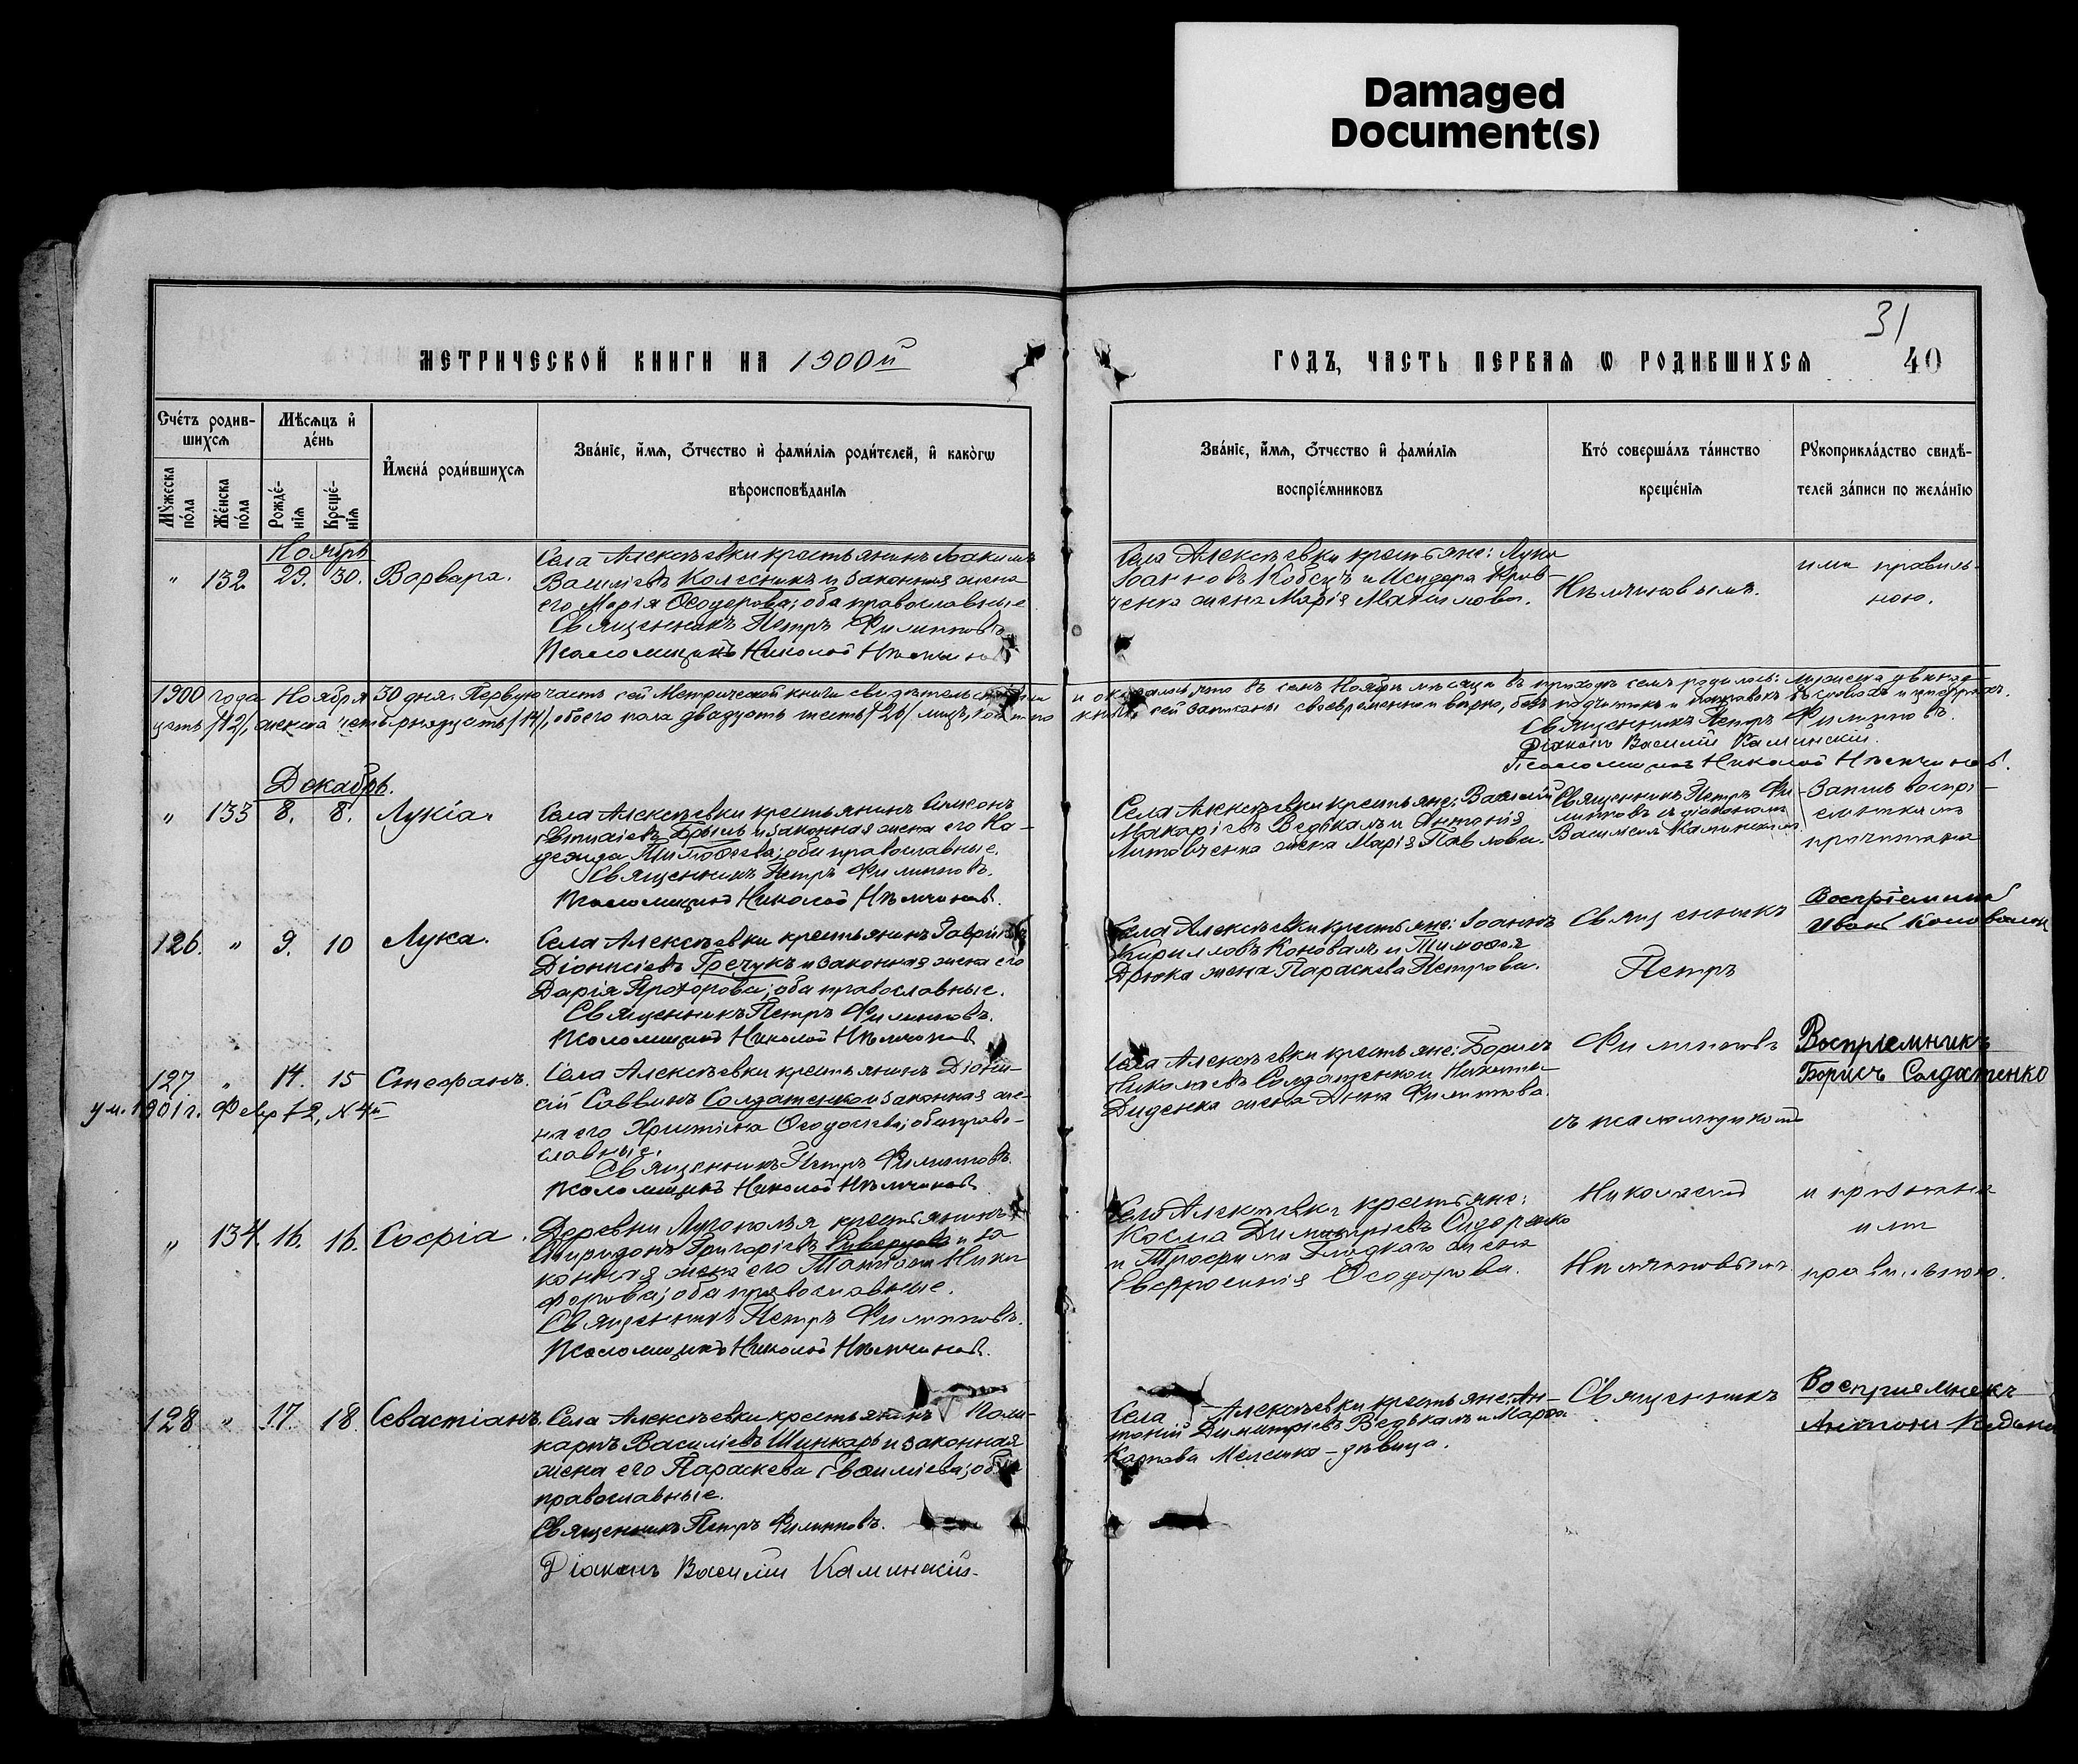 Damaged
Document(s)
МЕТРИЧЕСКОЙ КНИГИ НА 1900й
ГОДЪ, ЧАСТЬ ПЕРВАЯ Ѡ РОДИВШИХСЯ
31
40
Счéтъ родив-
шихсѧ
Мѣсѧцъ и҆
дéнь
Мꙋ́жеска
пóла
Жéнска
пóла
Рождé-
нїѧ
Крещé-
нїѧ
И҆мена́ роди́вшихсѧ
Зва́нїе, и҆́мѧ, ѻ҆́тчество и҆ фами́лїѧ роди́телей, и҆ како́гѡ
вѣроисповѣ́данїѧ
Зва́нїе, и҆́мѧ, ѻ҆́тчество и҆ фами́лїѧ
воспрїе́мниковъ
Кто́ соверша́лъ та́инство
креще́нїѧ
Рꙋкоприкла́дство свидѣ́-
телей за́писи по жела́нїю
Ноябрь
" 132 29. 30. Варвара.
Села Алексѣевки крестьянинъ Іоакимъ
Василіевъ Колесникъ и законная жена
его Марія Ѳеодорова; оба православные
Священникъ Петръ Филипповъ
Псаломщикъ Николай Нѣмчинов
Села Алексѣевки крестьяне: Лука
Іоанновъ Кобецъ и Исидора Крив-
ченка жена Марія
Нѣмчиновымъ.
ими правиль-
ною.
1900 года Ноября 30 дня. Первую часть сей Метрической книги свидѣтельствовали
и оказалось, что въ семъ Ноябрѣ мѣсяцѣ въ приходѣ семъ родилось: мужеска двѣнад-
цать /12/, женска четырнадцать /14/, обоего пола двадцать шесть /26/ лицъ, кои по
книгѣ сей записаны своевременно и вѣрно, безъ подчистокъ и поправокъ въ словахъ и цифрахъ.
Священникъ Петръ Филипповъ.
Діаконъ Василій Каминскій.
Псаломщикъ Николай Нѣмчинов.
Декабрь.
" 133 8. 8. Лукія.
Села Алексѣевки крестьянинъ Симеонъ
и законная жена его На-
дежда Тимоѳеева; оба православные.
Священникъ Петръ Филипповъ.
Псаломщикъ Николай Нѣмчинов.
Села Алексѣевки крестьяне: Василій
Макаріевъ Ведькалъ и Антонія
Литовченка жена Марія Павлова.
Священникъ Петръ Фи-
липповъ съ діакономъ
Василіемъ Каминскимъ
Запись воспрі-
емникамъ
прочитана
126. " 9. 10 Лука.
Села Алексѣевки крестьянинъ Гавріилъ
Діонисіевъ Гречукъ и законная жена его
Дарія Прохорова; оба православные.
Священникъ Петръ Филипповъ.
Псаломщикъ Николай Нѣмчинов
Села Алексѣевки крестьяне: Іоаннъ
Кирилловъ Коновалъ и Тимоѳея
Дрюка жена Параскева Петрова.
Священникъ
Петръ
Воспріемникъ
Иванъ Коновалъ
127 " 14. 15 Стефанъ.
ум. 1901 г. Февр 12, N 4й
Села Алексѣевки крестьянинъ Діони-
сій Саввинъ Солдатенко и законная же-
на его Христина Ѳеодосіева; оба право-
славные.
Священникъ Петръ Филипповъ.
Псаломщикъ Николай Нѣмчинов.
Села Алексѣевки крестьяне: Борисъ
Николаевъ Солдатенко и Никиты
Диденка жена Анна Филиппова.
Филипповъ
съ псаломщикомъ
Воспріемникъ
Борисъ Солдатенко
" 134. 16. 16. Софія.
Деревни Лугополья крестьянинъ
Спиридонъ Григоріевъ и за
конная жена его Татіана Ники
форова; оба православные.
Священникъ Петръ Филипповъ.
Псаломщикъ Николай Нѣмчинов.
Села Алексѣевки крестьяне:
Косма Димитріевъ Сидоренко
и Трофима Гладкаго жена
Евфросинія Ѳеодорова.
Николаемъ
Нѣмчиновымъ
и признана
ими
правильною.
128 " 17. 18 Севастіанъ.
Села Алексѣевки крестьянинъ Поли-
карпъ Василіевъ Шинкарь и законная
жена его Параскева; оба
православные.
Священникъ Петръ Филипповъ.
Діаконъ Василій Каминскій.
Села Алексѣевки крестьяне: Ан-
тоній Димитріевъ Ведькалъ и Марѳа
Карпова – дѣвица.
Священникъ
Воспріемникъ
Антонъ